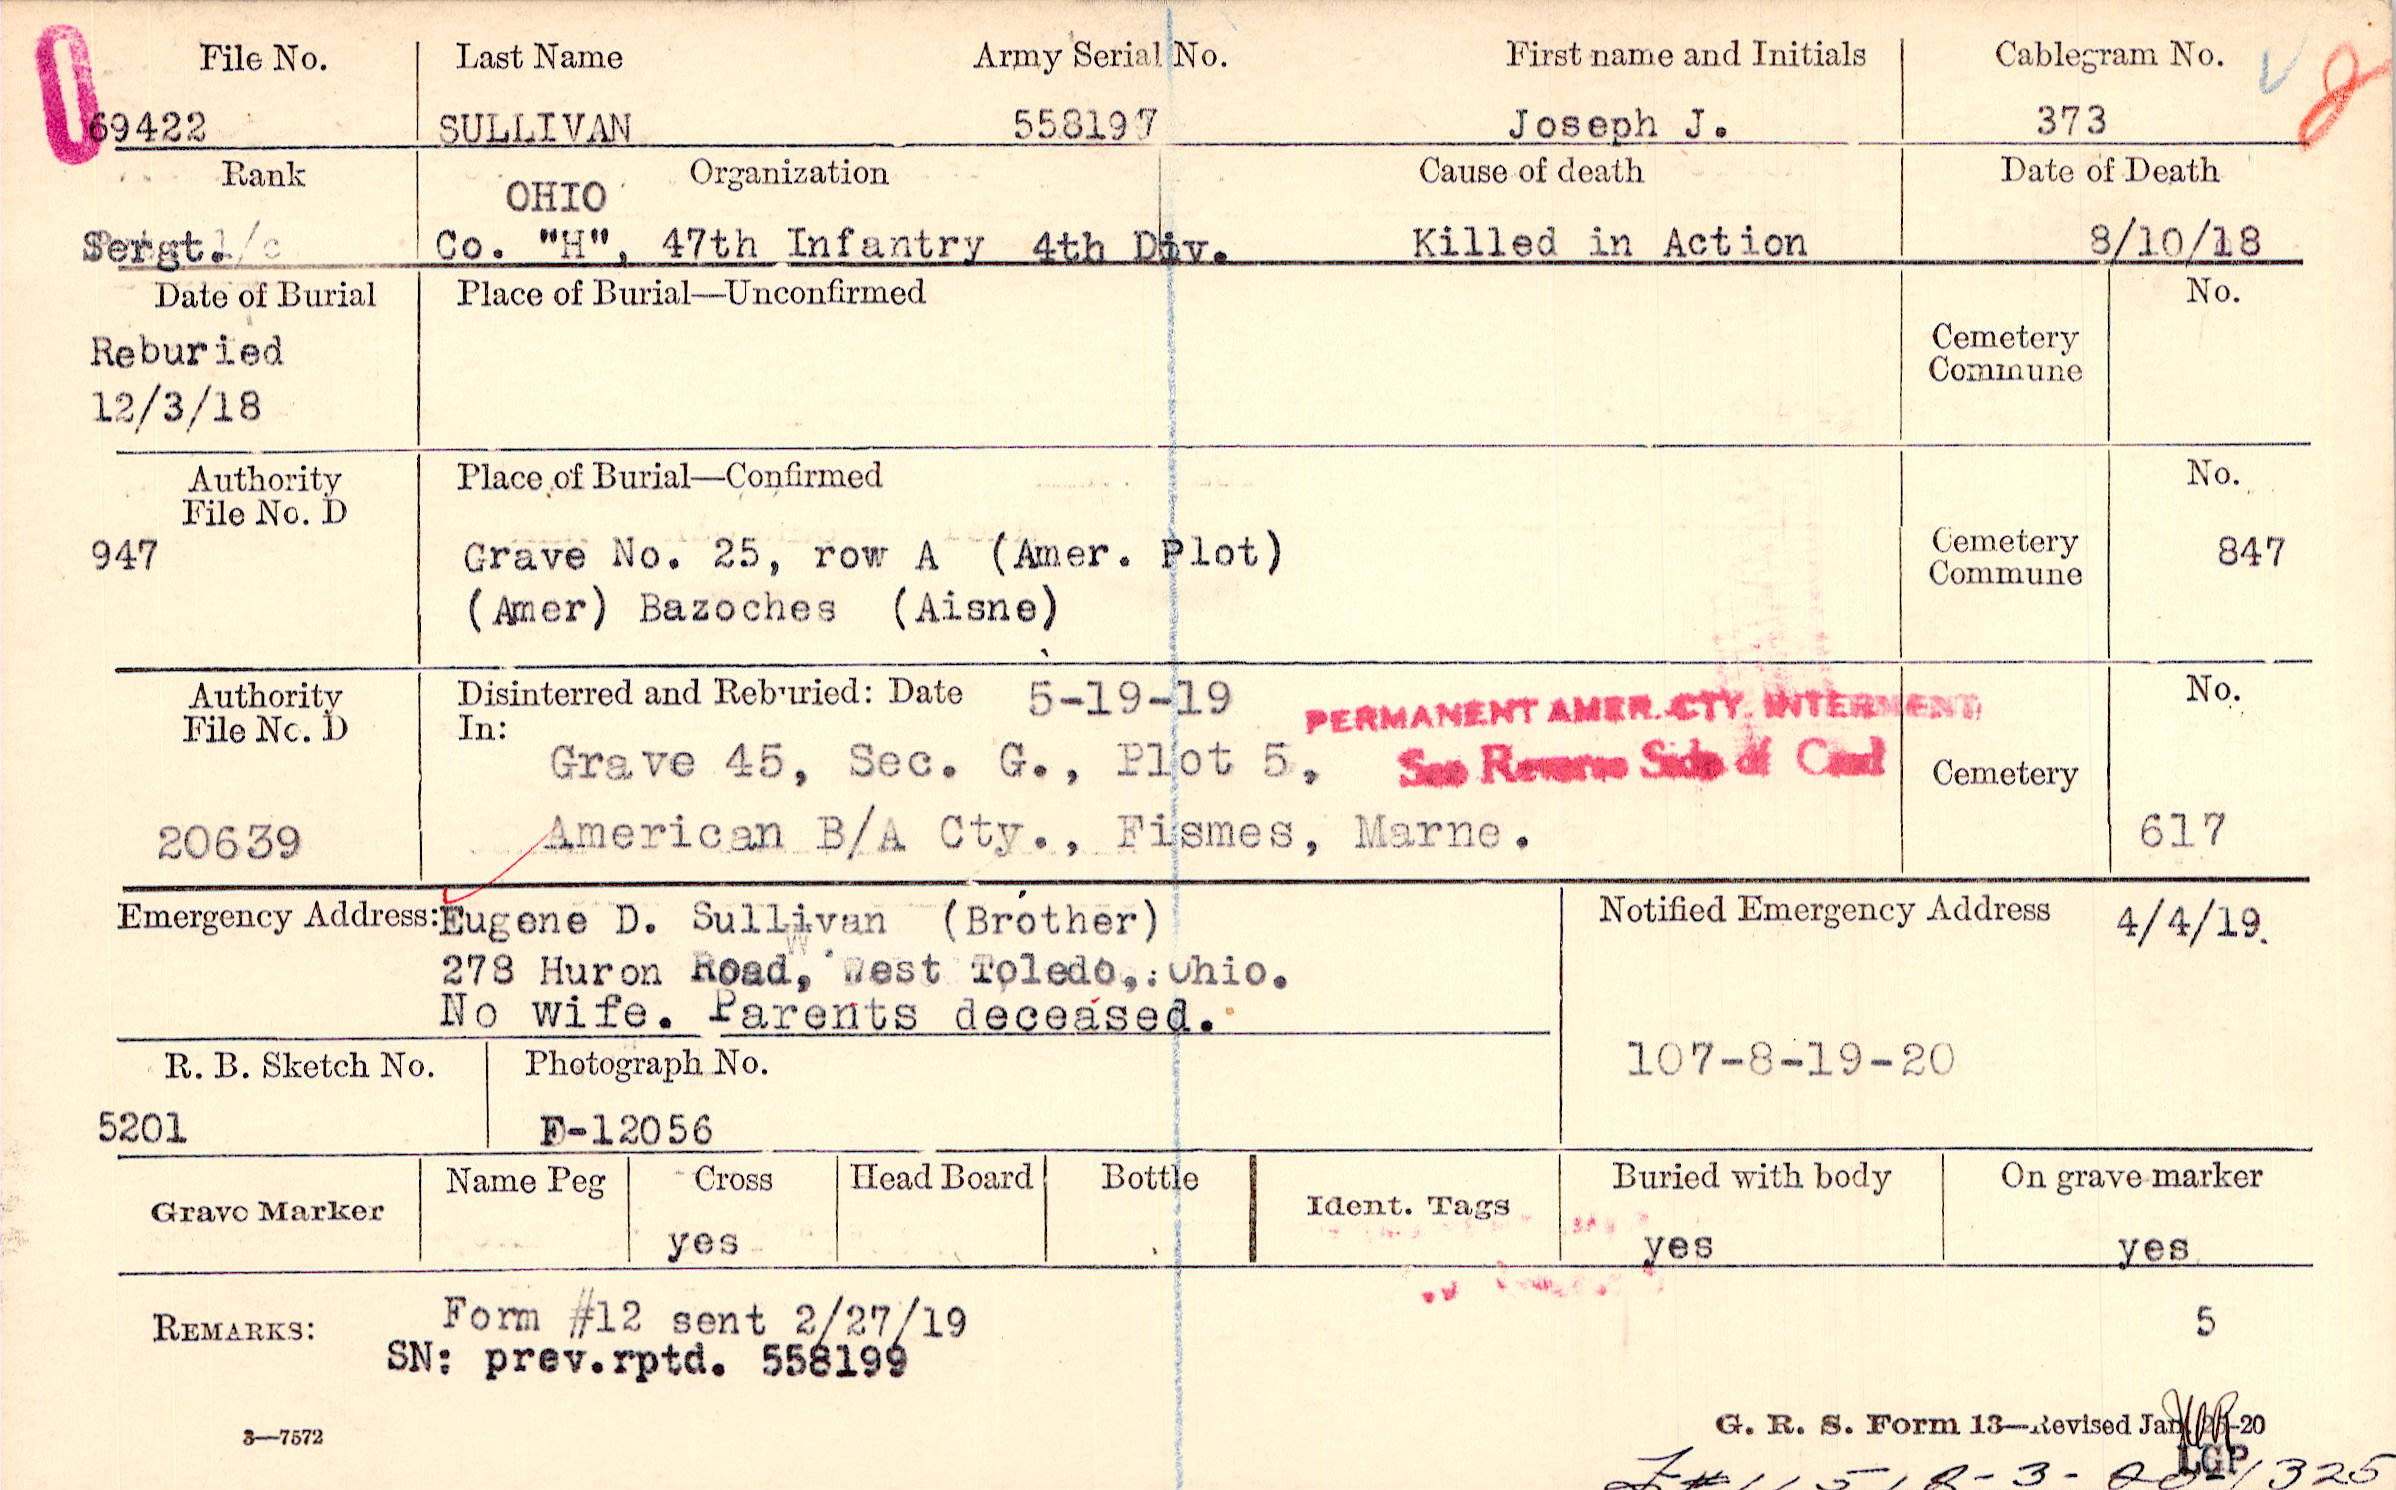 File No. Last Name Army Serial No. First name and Initials Cablegram No.
69422 SULLIVAN 558197 Joseph J. 373
Rank Organization Cause of death Date of Death
OHIO
Sergt. Co. "H", 47th Infantry 4th Div. Killed in Action 8/10/18
Date of Burial Place of Burial—Unconfirmed No.
Reburied Cemetery
12/3/18 Commune
Authority Place of Burial—Confirmed No.
File No. D
947 Grave No. 25, row A (Amer. Plot) Cemetery 847
(Amer) Bazoches (Aisne) Commune
Authority Disinterred and Reburied: Date 5-19-19 No.
File No. D In:
PERMANENT AMER. CTY. INTERMENT
Grave 45, Sec. G., Plot 5, Cemetery
See Reverse Side of Card
20639 American B/A Cty., Fismes, Marne. 617
Emergency Address: Eugene D. Sullivan (Brother) Notified Emergency Address 4/4/19.
278 Huron Road, West Toledo, Ohio.
No wife. Parents deceased.
R. B. Sketch No. Photograph No. 107-8-19-20
5201 F-12056
Name Peg Cross Head Board Bottle Buried with body On grave marker
Grave Marker Ident. Tags
yes yes yes
REMARKS: Form #12 sent 2/27/19 5
SN: prev.rptd. 558199
3—7572 G. R. S. Form 13—Revised Jan. 20
LGP